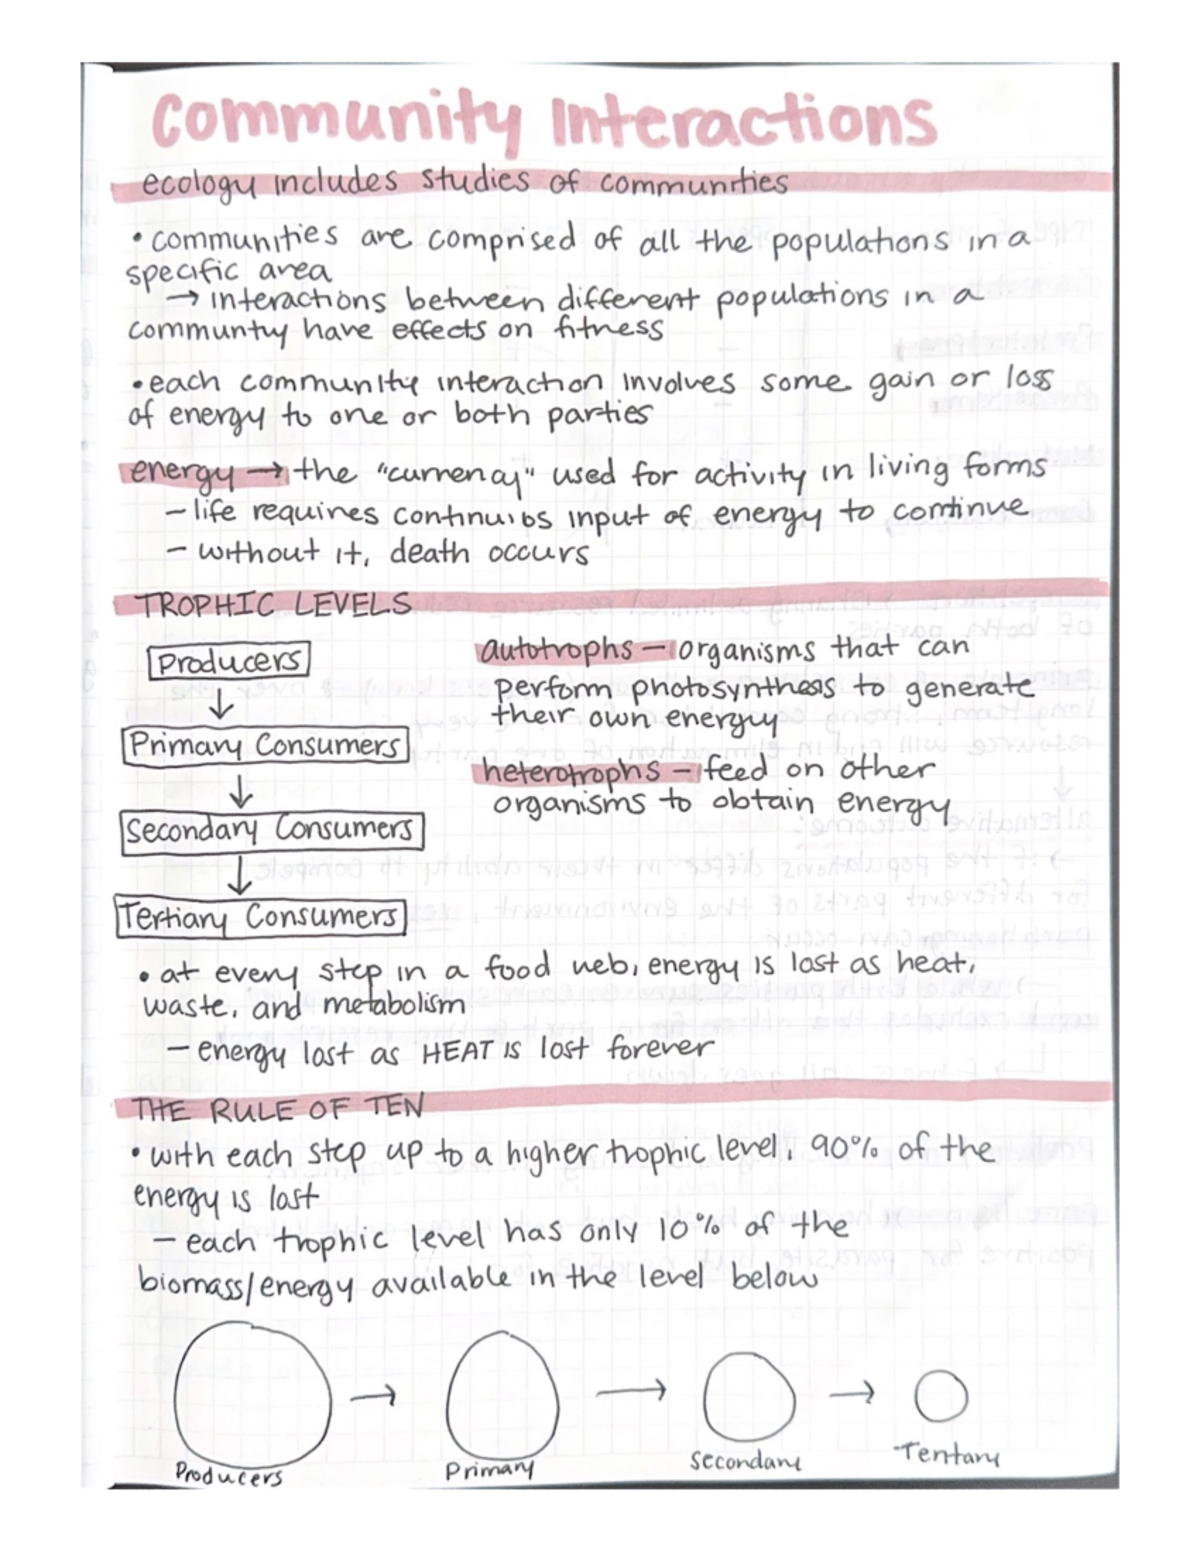 Community Interactions
ecology includes studies of communities
• communities are comprised of all the populations in a
specific area
→ interactions between different populations in a
community have effects on fitness
• each community interaction involves some gain or loss
of energy to one or both parties
energy → the "currency" used for activity in living forms
– life requires continuios input of energy to continue
– without it, death occurs
TROPHIC LEVELS
Producers
↓
Primary Consumers
↓
Secondary Consumers
↓
Tertiary Consumers
autotrophs – organisms that can
perform photosynthesis to generate
their own energy
heterotrophs – feed on other
organisms to obtain energy
• at every step in a food web, energy is lost as heat,
waste, and metabolism
– energy lost as HEAT is lost forever
THE RULE OF TEN
• with each step up to a higher trophic level, 90% of the
energy is lost
– each trophic level has only 10% of the
biomass/energy available in the level below
Producers → Primary → Secondary → Tertiary